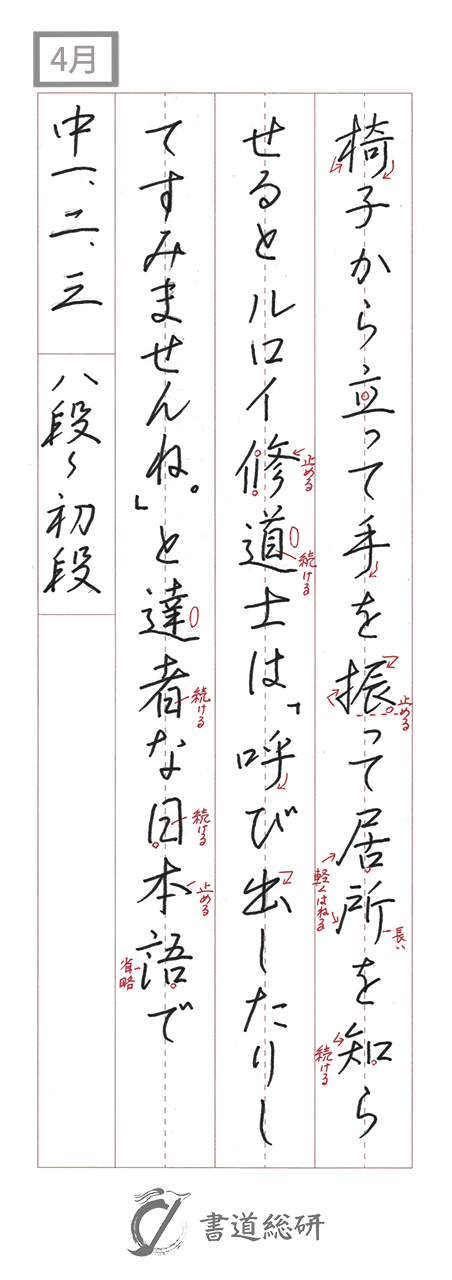 4月
椅子から立って手を振って居所を知ら
せるとルロイ修道士は、「呼び出したりし
てすみませんね。」と達者な日本語で
中一、二、三 八段〜初段
止める
続ける
止める
軽くはねる
長い
続ける
続ける
続ける
止める
省略
書道総研